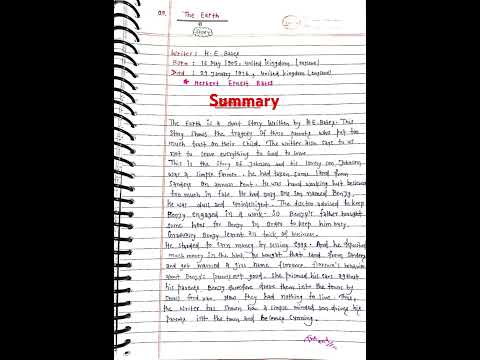 The Earth
Story
Writer: H.E. Bates
Born : 16 May 1905, United Kingdom, England
Died : 29 January 1974, United Kingdom England
* Herbert Ernest Bates
Summary
The Earth is a short story written by H.E. Bates. This
story shows the tragedy of those parents who put too
much trust on their child. The writer also says to us
not to serve everything to
This is the story of Johnson and his loving son Johnson
was a simple farmer. He had taken some land from
Sanders on annum rent. he was hard working but believed
too much in fate. He had only one son named Benjy.
he was dull and unintelligent. The doctor advised to keep
Benjy engaged in a work. so Benjy's father bought
some hens for Benjy in order to keep him busy.
Gradually Benjy learnt all trick of business.
He started to earn money by selling eggs. And he deposited
much money in the bank. he bought that land from Sanders
and got married a girl name florence. florence's behavior
about Benjy's parents not good. she poisoned his ears against
his parents Benjy therefore drove them into the town by
small ford van. Now they had nothing to live. Thus,
the writer has shown how a simple minded son drives his
parents into the town and becomes cunning.